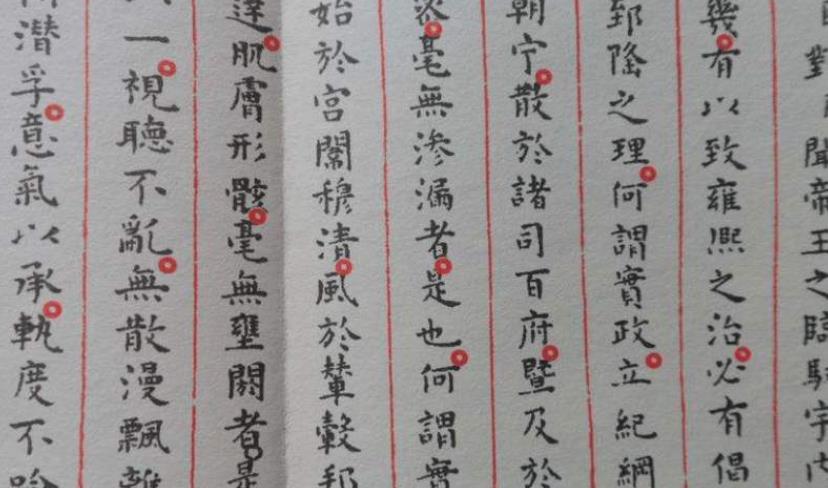 對臣聞帝王之臨馭宇内
幾有以致雍熙之治必有倡
郅隆之理何謂實政立紀綱
朝宁散於諸司百府暨及於
毫無滲漏者是也何謂實
始於宮閫穆清風於輦轂邦
達肌膚形骸毫無壅閼者是
一視聽不亂無散漫飄離
潛孚意氣以承執度不踰